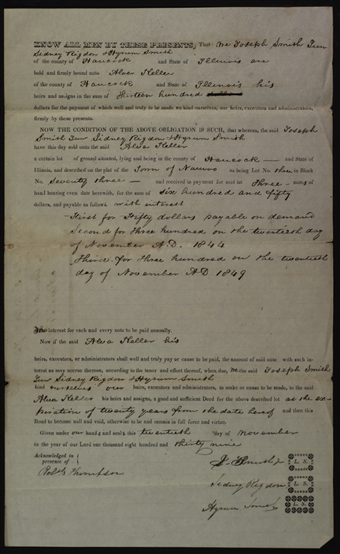 KNOW ALL MEN BY THESE PRESENTS, That we Joseph Smith Jun
Sidney Rigdon & Hyrum Smith
of the county of Hancock and State of Illinois are
held and firmly bound unto Alva Keller
of the county of Hancock and State of Illinois his
heirs and assigns in the sum of Thirteen hundred
dollars for the payment of which well and truly to be made we bind ourselves, our heirs, executors and administrators,
firmly by these presents.
NOW THE CONDITION OF THE ABOVE OBLIGATION IS SUCH, that whereas, the said Joseph
Smith Jun Sidney Rigdon & Hyrum Smith
have this day sold unto the said Alva Keller
a certain lot of ground situated, lying and being in the county of Hancock and State of
Illinois, and described on the plat of the Town of Nauvoo as being Lot No. in Block
No. Seventy three and received in payment for said lot Three notes of
hand bearing even date herewith, for the sum of six hundred and fifty
dollars, and payable as follows. with interest
First for Fifty dollars payable on demand
Second for three hundred on the twentieth day
of November A.D. 1844
Third for three hundred on the twentieth
day of November AD 1849
The interest for each and every note to be paid annually.
Now if the said Alva Keller his
heirs, executors, or administrators shall well and truly pay or cause to be paid, the amount of said note with each in-
terest as may accrue thereon, according to the tenor and effect thereof, when due, the said Joseph Smith
Jun Sidney Rigdon & Hyrum Smith
bind ourselves our heirs, executors and administrators, to make or cause to be made, to the said
Alva Keller his heirs and assigns, a good and sufficient Deed for the above described lot at the ex-
piration of twenty years from the date hereof and then this
Bond to become null and void, otherwise to be and remain in full force and virtue.
Given under our hands and seals this twentieth day of November
in the year of our Lord one thousand eight hundred and thirty nine
Acknowledged in
presence of
Robt B Thompson
J. Smith Jr L. S.
Sidney Rigdon L. S.
Hyrum Smith L. S.